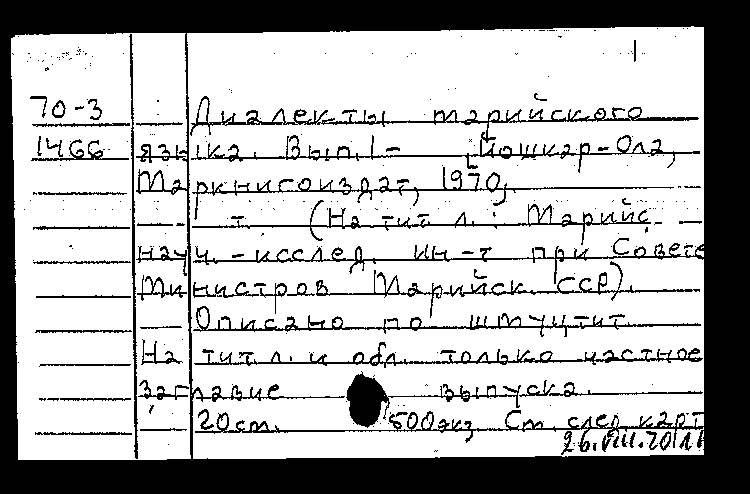 70-3 Диалекты марийского
1466 языка. Вып. 1- Йошкар-Ола,
Маркнигоиздат, 1970,-
т. (На тит л.: Марийс.
науч.-исслед. ин-т при Совете
Министров Марийск. ССР).
Описано по шмуцтит
На тит. л. и обл. только частное
заглавие выпуска.
20 см. 500 экз См. след. карт